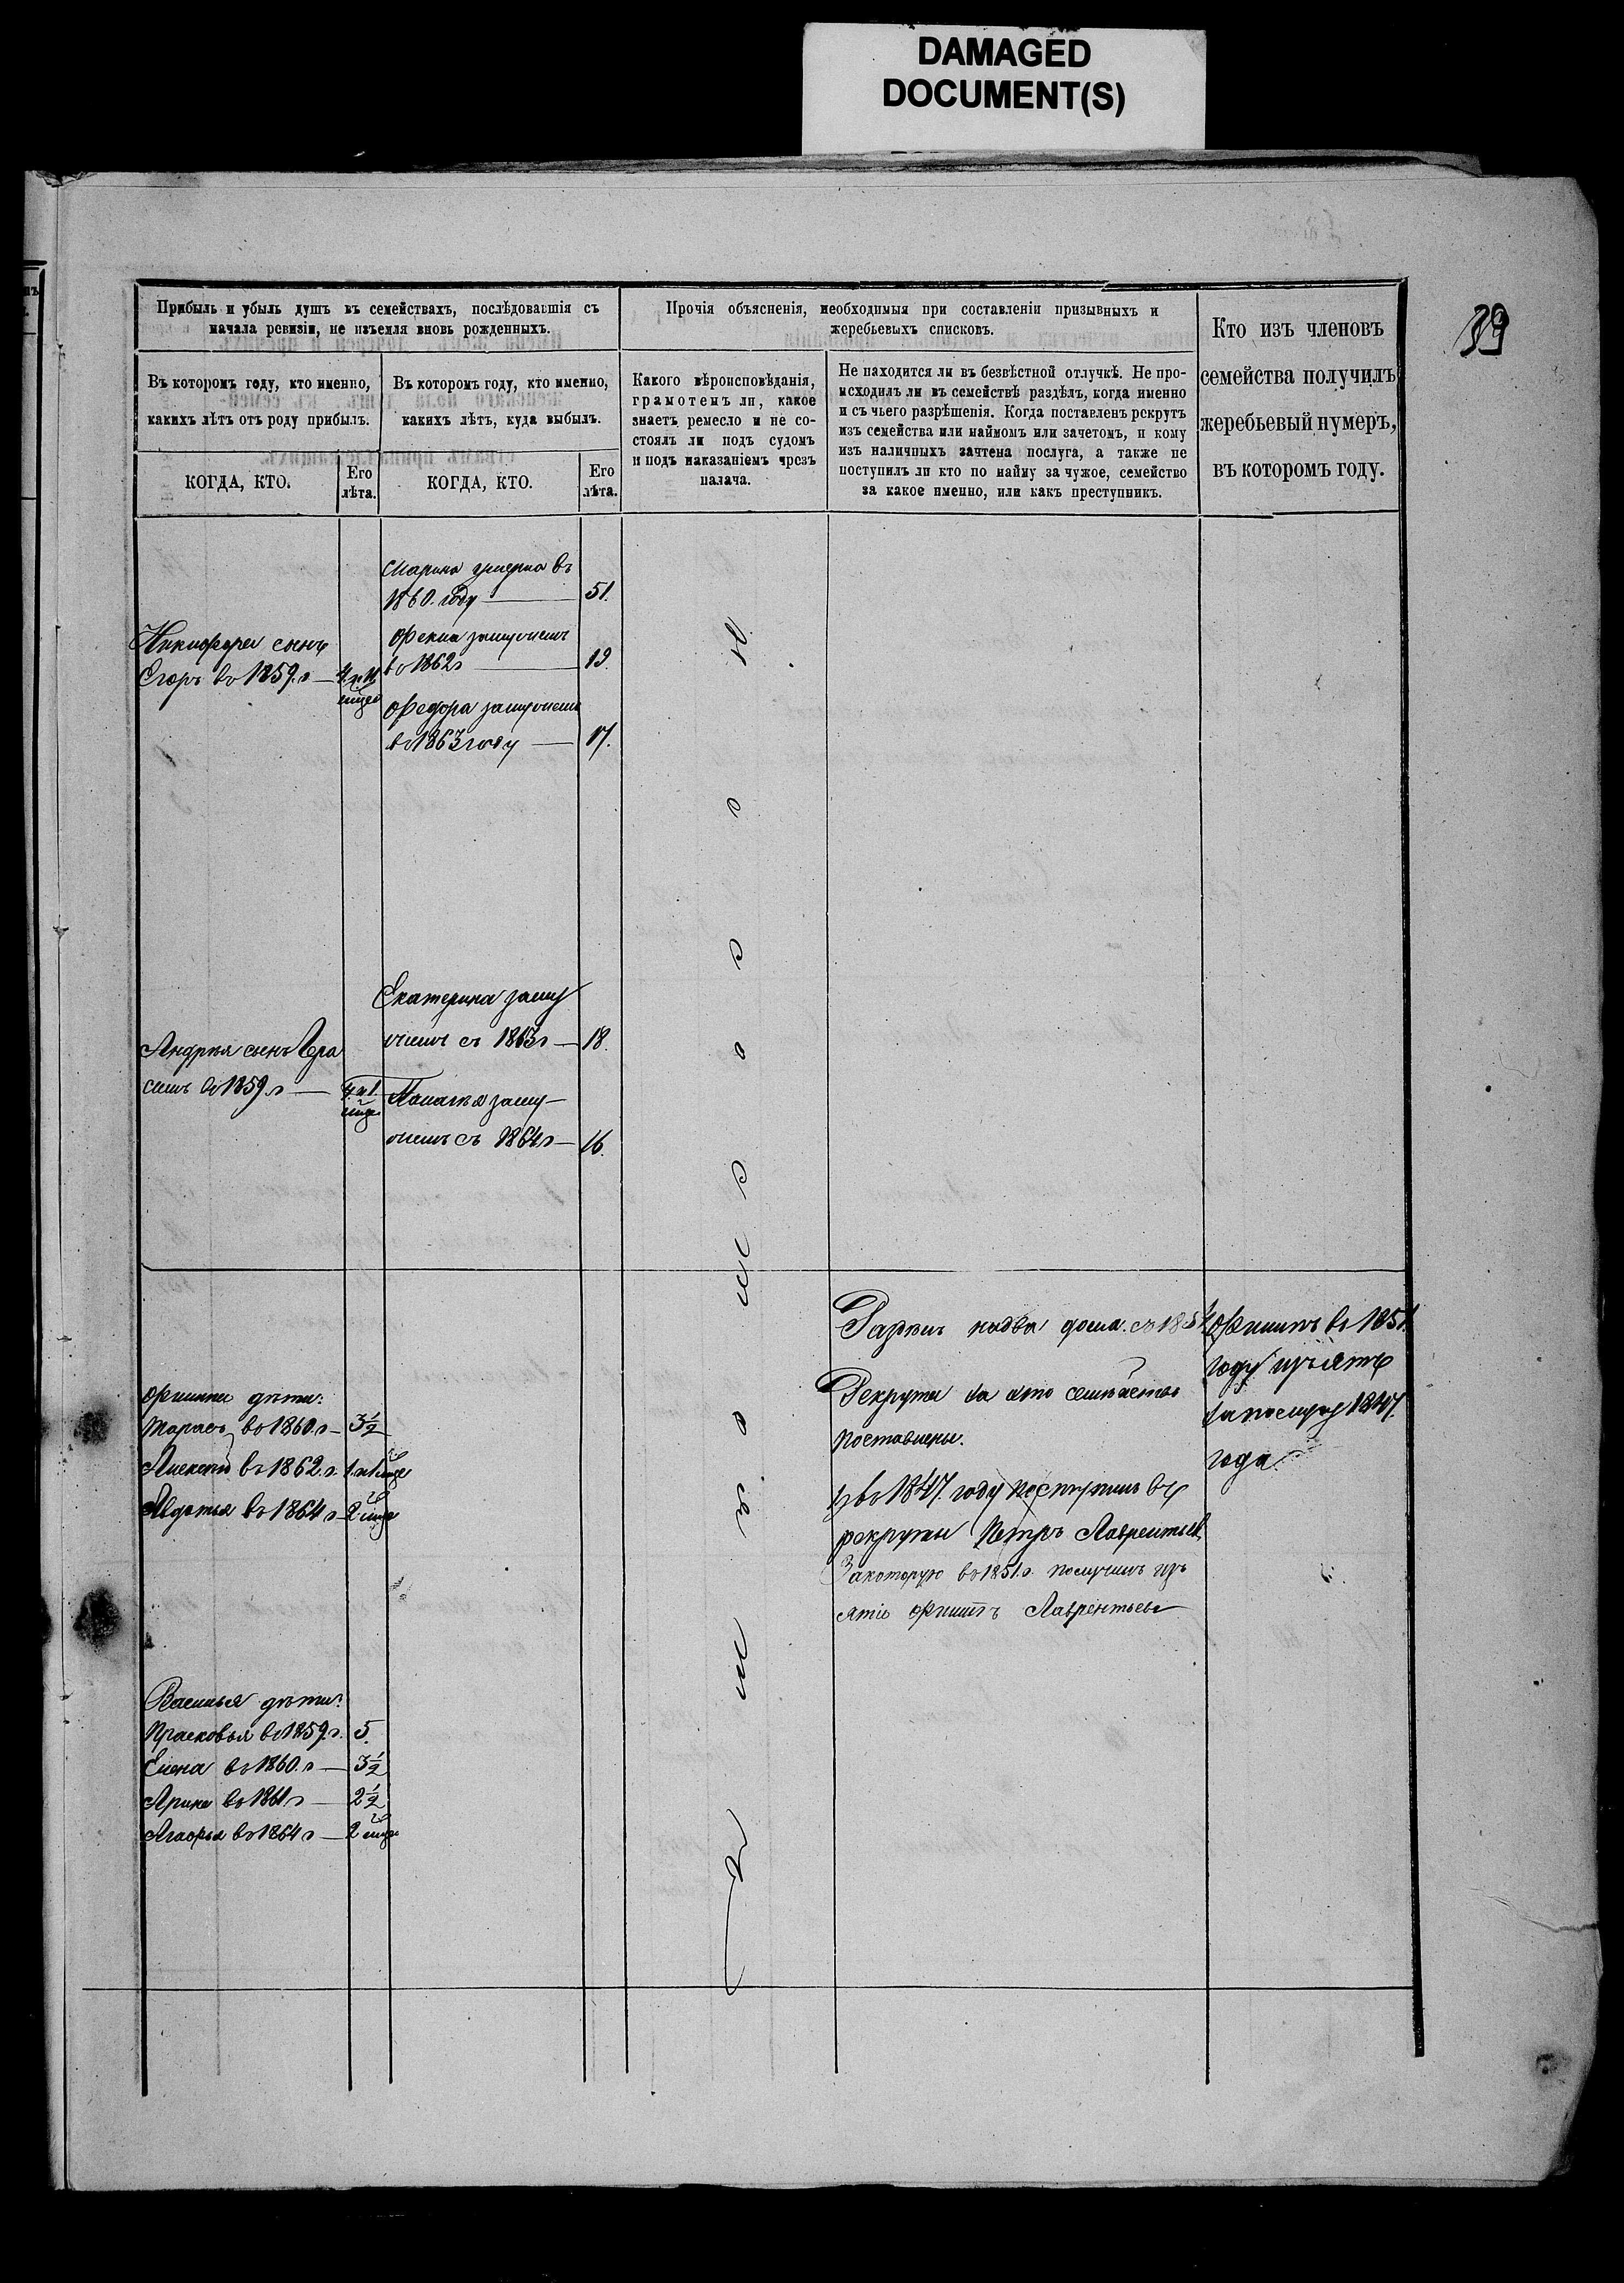 DAMAGED
DOCUMENT(S)
39
Прибыль и убыль душъ въ семействахъ, послѣдовавшія съ
начала ревизіи, не изъемля вновь рожденныхъ.
Прочія объясненія, необходимыя при составленіи призывныхъ и
жеребьевыхъ списковъ.
Кто изъ членовъ
семейства получилъ
жеребьевый нумеръ,
въ которомъ году.
Въ которомъ году, кто именно,
какихъ лѣтъ отъ роду прибылъ.
Въ которомъ году, кто именно,
какихъ лѣтъ, куда выбылъ.
Какого вѣроисповѣданія,
грамотенъ ли, какое
знаетъ ремесло и не со-
стоялъ ли подъ судомъ
и подъ наказаніемъ чрезъ
палача.
Не находится ли въ безвѣстной отлучкѣ. Не про-
исходилъ ли въ семействѣ раздѣлъ, когда именно
и съ чьего разрѣшенія. Когда поставленъ рекрутъ
изъ семейства или наймомъ или зачетомъ, и кому
изъ наличныхъ зачтена послуга, а также не
поступилъ ли кто по найму за чужое, семейство
за какое именно, или какъ преступникъ.
КОГДА, КТО.
Его
лѣта.
КОГДА, КТО.
Его
лѣта.
Марина умерла въ
1860. году — 51.
Никифора сынъ
Егоръ въ 1859. г —
Фекла замужемъ
въ 1862 г — 19.
Федора замужемъ
въ 1863 году — 17.
Екатерина заму
жемъ съ 1863 г — 18.
Андрея сынъ Гера
симъ въ 1859. г —
Маланья заму—
жемъ съ 1864 г — 16.
Православнаго
Филиппа дѣти:
Тарасъ въ 1860. г — 3½
Алексѣй въ 1862. г
Авдотья въ 1864 г — 2 мѣс
Василья дѣти:
Прасковья въ 1859. г. 5.
Елена въ 1860. г — 3½
Арина въ 1861 г — 2½
Агафья въ 1864 г — 2 мѣс
Раздѣлъ на два дома съ 1854
Рекруты за это семѣйство
поставлены.
1, въ 1847. году поступилъ въ
рекруты Петръ Лаврентьев
За которую въ 1851. г. получилъ изъ
ятіе Филиппъ Лаврентьевъ
Филиппъ въ 1851.
году изъятъ
за послугу 1847.
года